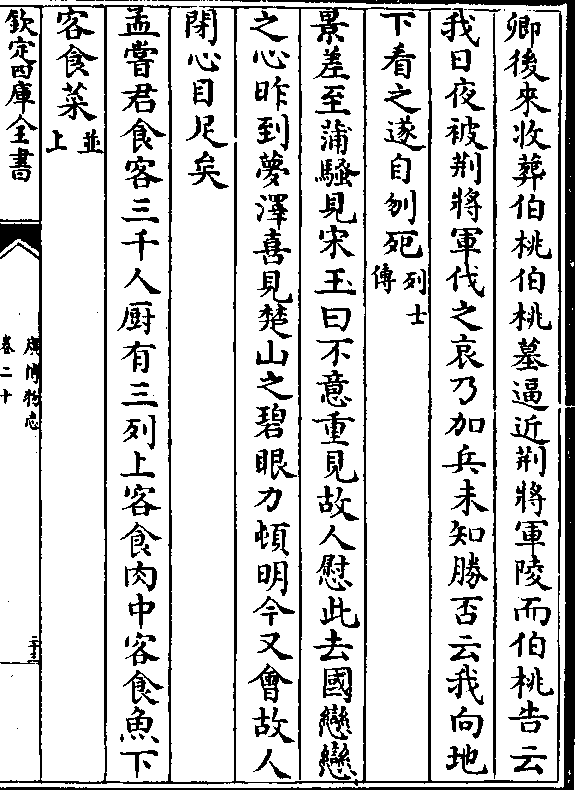 卿後來收葬伯桃伯桃墓逼近荆將軍陵而伯桃告云
我日夜被荆將軍伐之哀乃加兵未知勝否云我向地
下看之遂自刎死列士傳
景差至蒲騷見宋玉曰不意重見故人慰此去國戀戀
之心昨到夢澤喜見楚山之碧眼力頓明今又會故人
閉心目足矣
孟嘗君食客三千人厨有三列上客食肉中客食魚下
客食菜並上
欽定四庫全書
廣博物志
卷二十